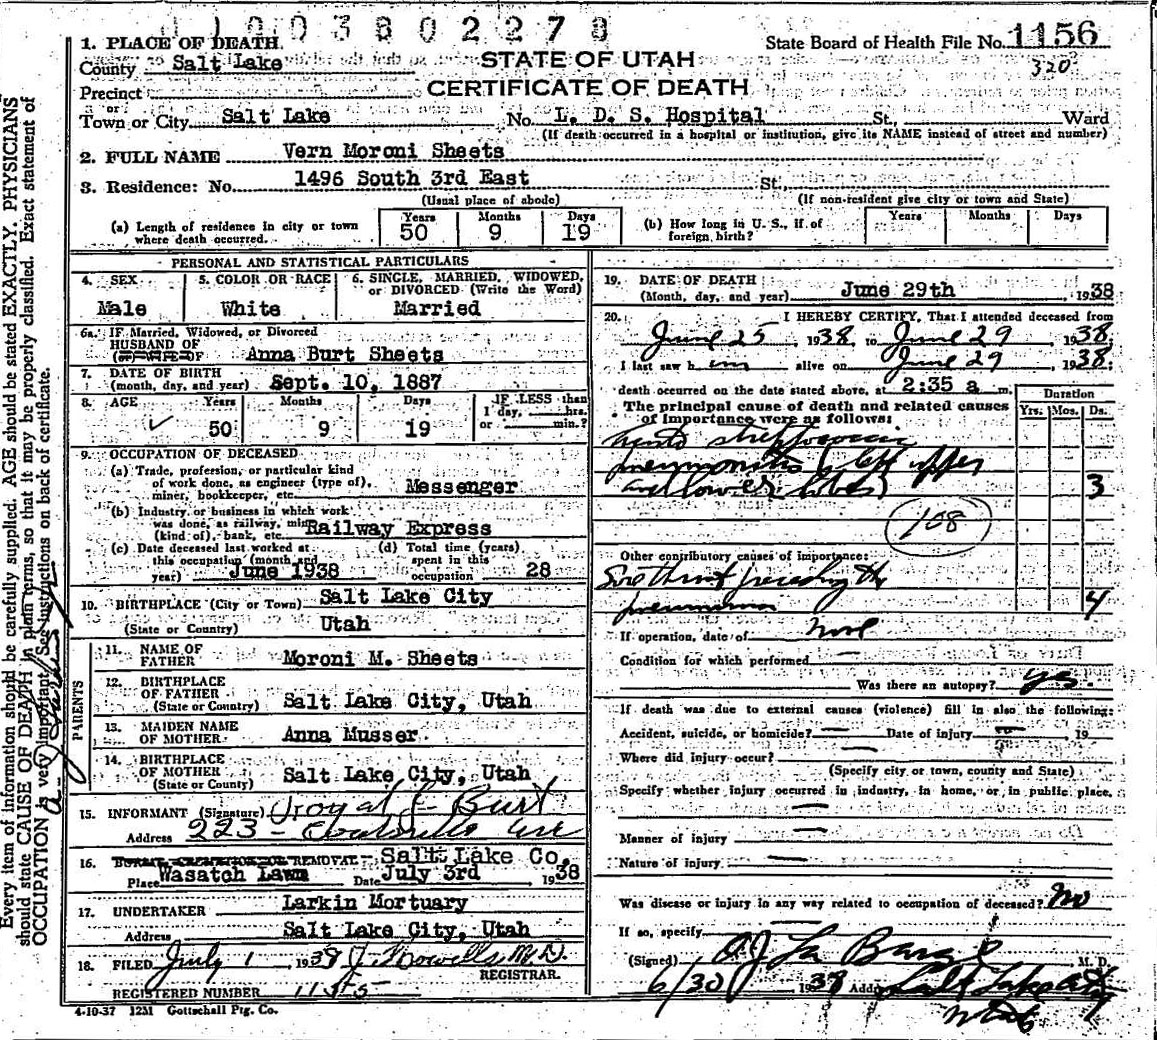 0 1 0 0 3 8 0 2 2 7 8
State Board of Health File No. 1156
320
1. PLACE OF DEATH
County Salt Lake
STATE OF UTAH
CERTIFICATE OF DEATH
Precinct
or
Town or City Salt Lake No. L. D. S. Hospital St., Ward
(If death occurred in a hospital or institution, give its NAME instead of street and number)
2. FULL NAME Vern Moroni Sheets
3. Residence: No. 1496 South 3rd East St.,
(Usual place of abode) (If non-resident give city or town and State)
(a) Length of residence in city or town where death occurred. Years 50 Months 9 Days 19
(b) How long in U. S., if of foreign birth? Years Months Days
PERSONAL AND STATISTICAL PARTICULARS
4. SEX Male
5. COLOR OR RACE White
6. SINGLE, MARRIED, WIDOWED, or DIVORCED (Write the Word) Married
6a. IF Married, Widowed, or Divorced
HUSBAND OF
Anna Burt Sheets
7. DATE OF BIRTH
(month, day, and year) Sept. 10, 1887
8. AGE Years 50 Months 9 Days 19 IF LESS than 1 day, hrs. or min.?
9. OCCUPATION OF DECEASED
(a) Trade, profession, or particular kind
of work done, as engineer (type of),
miner, bookkeeper, etc. Messenger
(b) Industry or business in which work
was done, as railway, mine
(kind of), bank, etc. Railway Express
(c) Date deceased last worked at
this occupation (month and
year) June 1938
(d) Total time (years)
spent in this
occupation 28
10. BIRTHPLACE (City or Town) Salt Lake City
(State or Country) Utah
PARENTS
11. NAME OF FATHER Moroni M. Sheets
12. BIRTHPLACE OF FATHER
(State or Country) Salt Lake City, Utah
13. MAIDEN NAME OF MOTHER Anna Musser
14. BIRTHPLACE OF MOTHER
(State or Country) Salt Lake City, Utah
15. INFORMANT (Signature) Burt
Address 223 Ave
16. BURIAL, CREMATION OR REMOVAL Salt Lake Co.
Place Wasatch Lawn Date July 3rd 1938
17. UNDERTAKER Larkin Mortuary
Address Salt Lake City, Utah
18. FILED July 1 1938 M.D.
REGISTRAR.
REGISTERED NUMBER 1155
4-10-37 1231 Gottschall Ptg. Co.
19. DATE OF DEATH
(Month, day, and year) June 29th, 1938
20. I HEREBY CERTIFY, That I attended deceased from
June 25, 1938, to June 29, 1938
I last saw him alive on June 29, 1938
death occurred on the date stated above, at 2:35 a m.
The principal cause of death and related causes
of importance were as follows:
Duration
Yrs. Mos. Ds.
streptococcic
pneumonitis (left upper
and lower lobes) 3
108
Other contributory causes of importance:
Sore throat preceding the
pneumonia 4
If operation, date of none
Condition for which performed
Was there an autopsy? yes.
If death was due to external causes (violence) fill in also the following:
Accident, suicide, or homicide? Date of injury 19
Where did injury occur?
(Specify city or town, county and State)
Specify whether injury occurred in industry, in home, or in public place.
Manner of injury
Nature of injury
Was disease or injury in any way related to occupation of deceased? No
If so, specify
(Signed) O J La Barge M. D.
6/30 1938 Address Salt Lake City
Utah
Every item of information should be carefully supplied. AGE should be stated EXACTLY. PHYSICIANS
should state CAUSE OF DEATH in plain terms, so that it may be properly classified. Exact statement of
OCCUPATION is very important. See instructions on back of certificate.